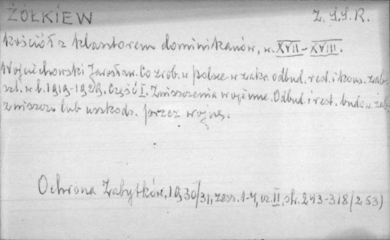 ŻÓŁKIEW Z.S.S.R.
Kościół z klasztorem dominikanów, w. XVII-XVIII.
Wojciechowski Jarosław. Co zrob. w Polsce w zakr. odbud. rest. i kons. zab.
szt. w l. 1919-1929. Część I. Zniszczenia wojenne. Odbud. i rest. budow. zab.
zniszcz. lub uszkodz. przez wojnę.
Ochrona Zabytków, 1930/31, zesz. 1-4, cz. II, str. 243-318 (253)